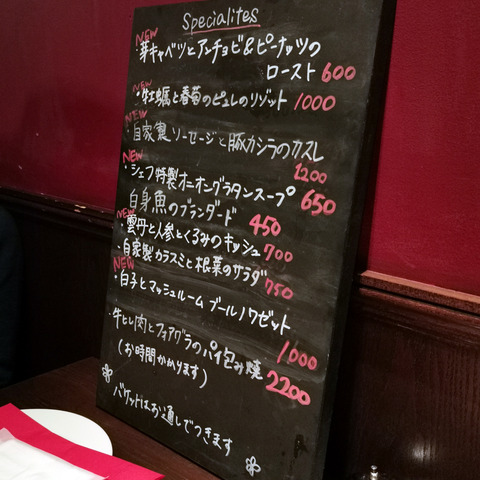 Specialités
NEW
芽キャベツとアンチョビ&ピーナッツの
ロースト 600
・牡蠣と春菊のピュレのリゾット 1000
NEW
・自家製ソーセージと豚カシラのカスレ
1200
NEW
・シェフ特製オニオングラタンスープ 650
白身魚のブランダード 450
NEW
・雲丹と人参とくるみのキッシュ 700
・自家製カラスミと根菜のサラダ 750
NEW
・白子とマッシュルーム ブールノワゼット
1,000
・牛ヒレ肉とフォアグラのパイ包み焼 2200
(お時間かかります)
バケットはお通しでつきます